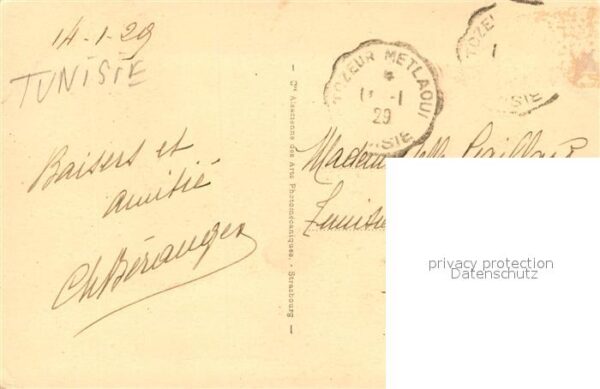 14-1-29
TUNISIE
Baisers et
amitié
Ch Béranger
— Cie Alsacienne des Arts Photomécaniques. - Strasbourg —
TOZEUR METLAOUI
-1
29
TOZE
1
privacy protection
Datenschutz